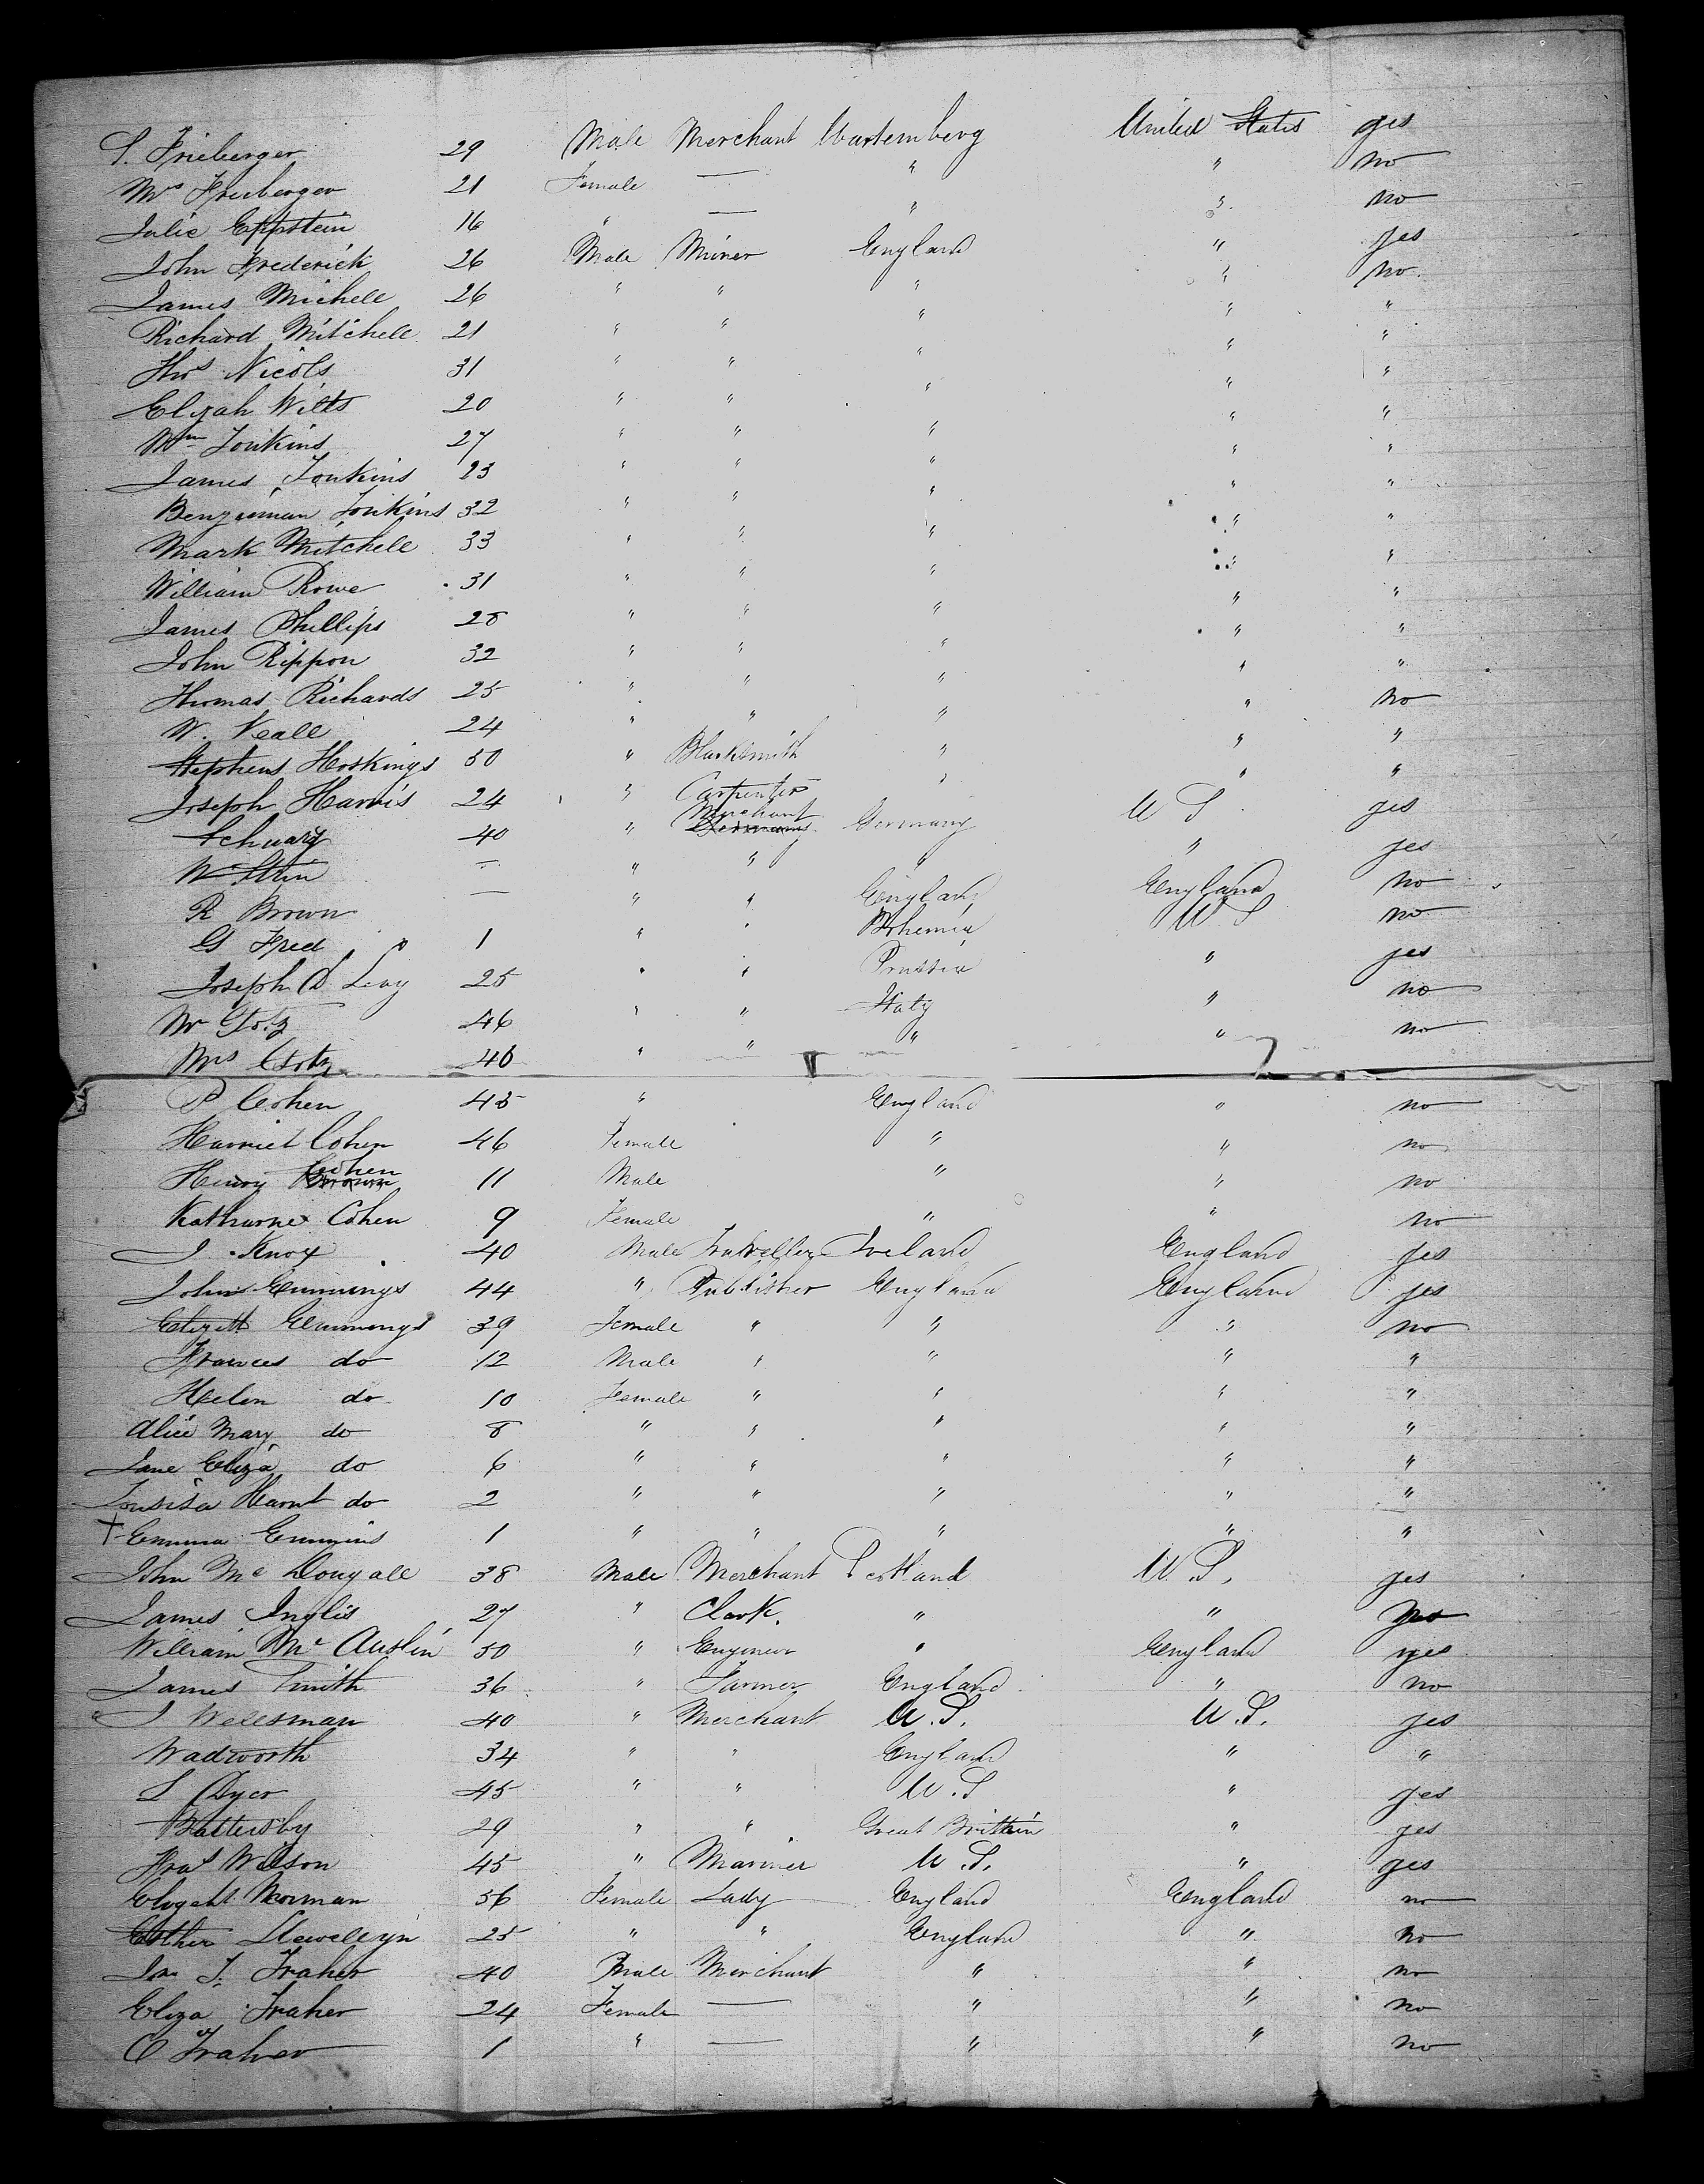 S. Frieberger 29 Male Merchant Wurtemberg United States yes
Mrs Frieberger 21 Female — " " no
Julie Eppstein 16 " — " " no
John Frederick 26 Male Miner England " yes
James Michell 26 " " " " no
Richard Mitchell 21 " " " " "
Thos Nicols 31 " " " " "
Elijah Wills 20 " " " " "
Wm Tonkins 27 " " " " "
James Tonkins 23 " " " " "
Benjieman Tonkins 32 " " " " "
Mark Mitchell 33 " " " " "
William Rowe 31 " " " " "
James Phillips 28 " " " " "
John Rippon 32 " " " " "
Thomas Richards 25 " " " " "
W. Neall 24 " " " " no
Stephens Hoskings 50 " Blacksmith " " "
Joseph Harris 24 " Carpenter " " "
Schuarz 40 " Merchant Germany U S yes
W Stein — " " " " yes
R Brown — " " England England no
G Fred 1 " " Bohemia U S no
Joseph S Levy 25 " " Prussia " yes
Mr Gotz 46 " " Italy " no
Mrs Gotz 46 " " " " no
P Cohen 45 " England " no
Harriet Cohen 46 Female " " no
Henry Cohen 11 Male " " no
Katharne Cohen 9 Female " " no
J. Knox 40 Male Traveller Ireland England yes
John Cummings 44 " Publisher England England yes
Elizth Cummings 39 Female " " " no
Frances do 12 Male " " " "
Helen do 10 Female " " " "
Alice Mary do 8 " " " " "
Jane Eliza do 6 " " " " "
Harnt do 2 " " " " "
+ Emma Cummins 1 " " " " "
John Mc Dougall 38 Male Merchant Scotland U.S. yes
James Inglis 27 " Clark. " "
William Mc Austin 50 " Engineer " England yes
James Smith 36 " Farmer England " no
J Wellsman 40 " Merchant U.S. U.S. yes
Wadworth 34 " " England " "
S Dyer 45 " " U.S " yes
Battersby 29 " " Great Brittin " yes
Fras Wilson 45 " Mariner U.S. " yes
Norman 56 Female Lady England England no
Esther Llewellyn 25 " " England " no
Jn T. Fraher 40 Male Merchant " " no
Eliza Fraher 24 Female — " " no
C Fraher 1 " — " " no